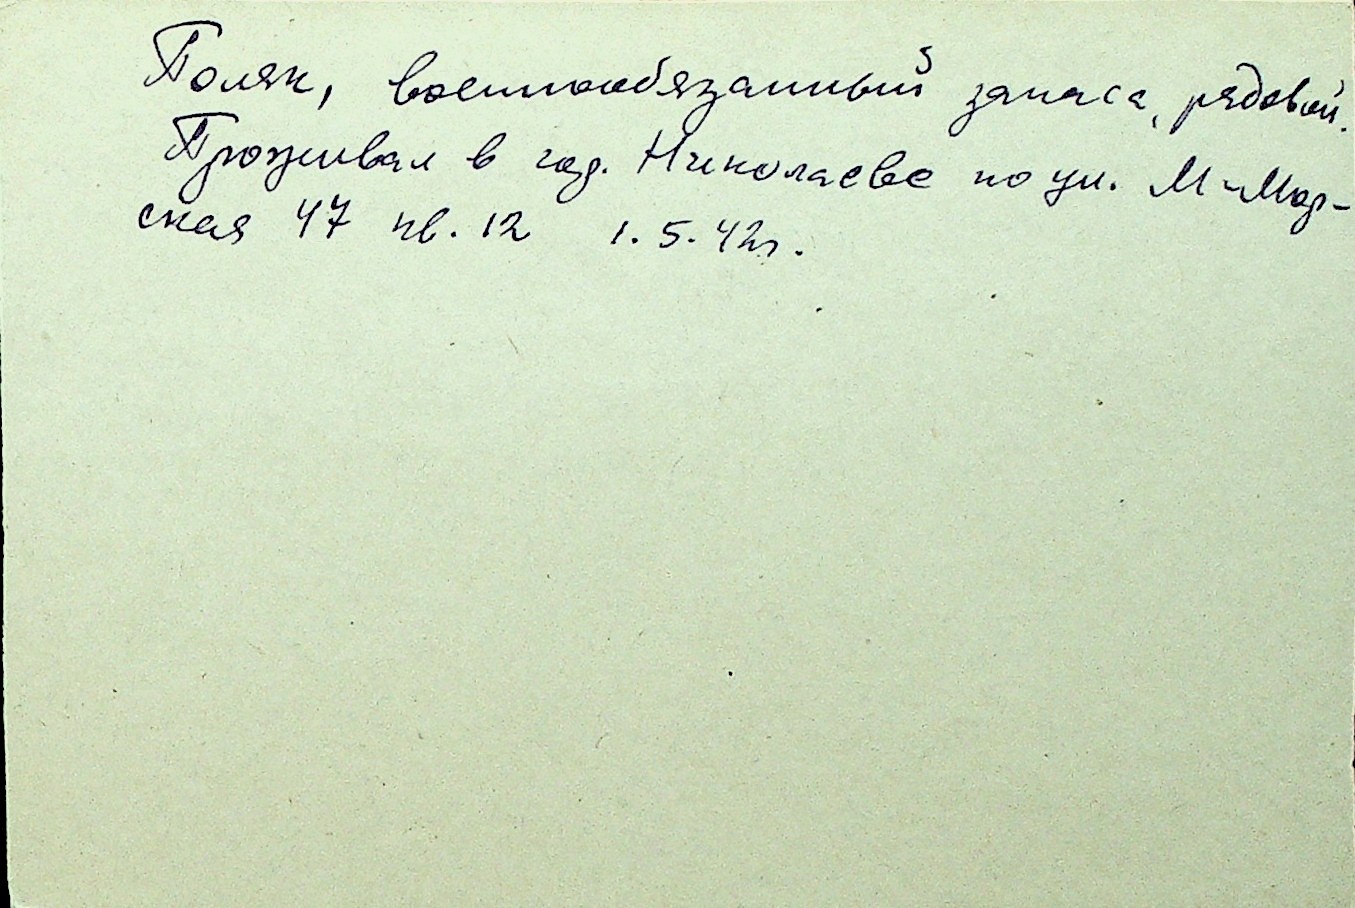 Поляк, военнообязанный запаса, рядовой.
Проживал в гор. Николаеве по ул. М-Мор-
ская 47 кв. 12 1.5.42г.